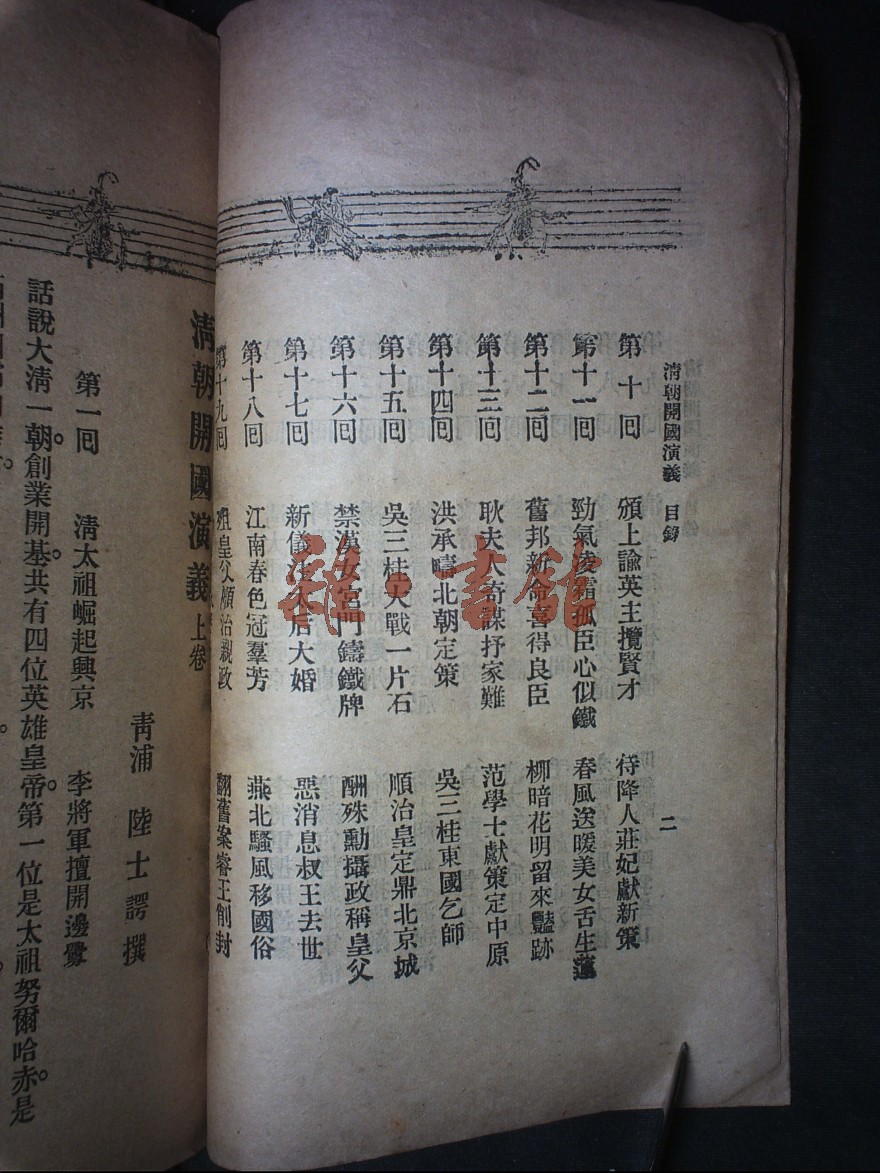 清朝開國演義 目錄
二
第十回 頒上諭英主攬賢才 待降人莊妃獻新策
第十一回 勁氣凌霜孤臣心似鐵 春風送暖美女舌生蓮
第十二回 舊邦新命喜得良臣 柳暗花明留來豔跡
第十三回 耿夫人奇謀抒家難 范學士獻策定中原
第十四回 洪承疇北朝定策 吳三桂東國乞師
第十五回 吳三桂大戰一片石 順治皇定鼎北京城
第十六回 禁漢女宮門鑄鐵牌 酬殊勳攝政稱皇父
第十七回 新儀注太后大婚 惡消息叔王去世
第十八回 江南春色冠羣芳 燕北騷風移國俗
第十九回 殂皇父順治親政 翻舊案睿王削封
清朝開國演義 上卷
青浦 陸士諤撰
第一回 清太祖崛起興京 李將軍擅開邊釁
話說大清一朝。創業開基。共有四位英雄皇帝。第一位是太祖努爾哈赤。是
雜·書館